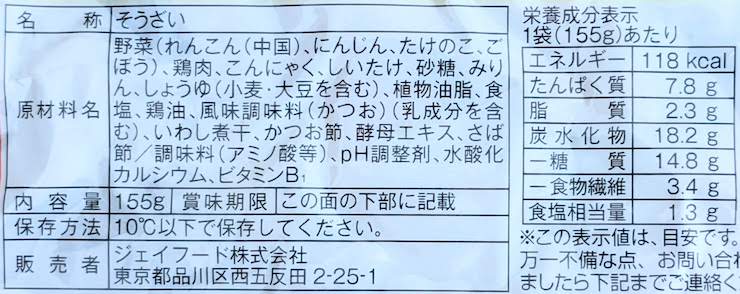 名　称 そうざい
原材料名 野菜（れんこん（中国）、にんじん、たけのこ、ご
ぼう）、鶏肉、こんにゃく、しいたけ、砂糖、みり
ん、しょうゆ（小麦・大豆を含む）、植物油脂、食
塩、鶏油、風味調味料（かつお）（乳成分を含
む）、いわし煮干、かつお節、酵母エキス、さば
節／調味料（アミノ酸等）、pH調整剤、水酸化
カルシウム、ビタミンB₁
内容量 155g 賞味期限 この面の下部に記載
保存方法 10℃以下で保存してください。
販売者 ジェイフード株式会社
東京都品川区西五反田2-25-1
栄養成分表示
1袋(155g)あたり
エネルギー 118 kcal
たんぱく質 7.8 g
脂質 2.3 g
炭水化物 18.2 g
ー糖質 14.8 g
ー食物繊維 3.4 g
食塩相当量 1.3 g
※この表示値は、目安です。
万一不備な点、お問い合わ
ましたら下記までご連絡く